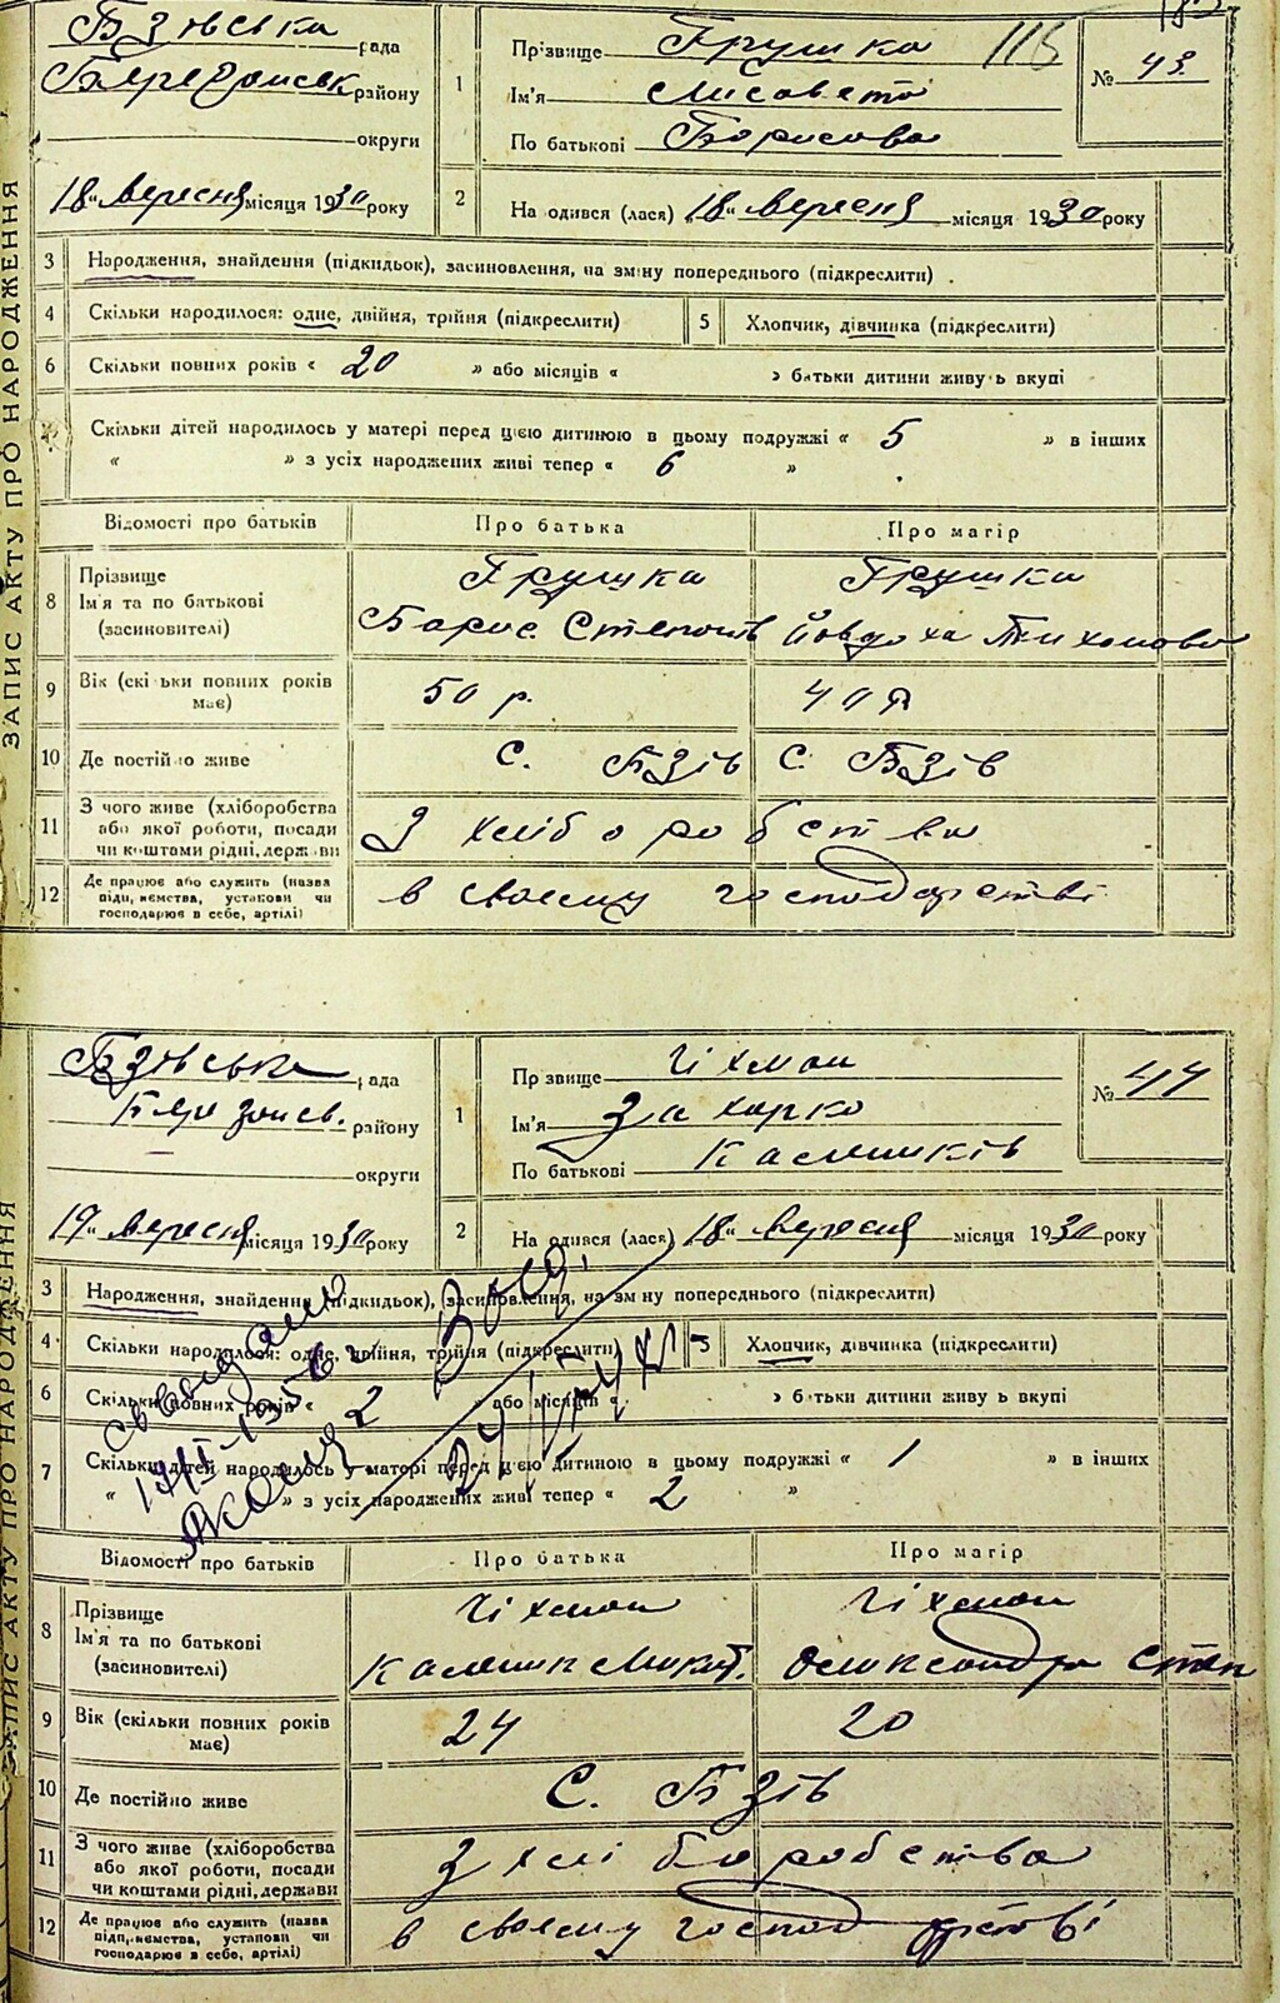 ЗАПИС АКТУ ПРО НАРОДЖЕННЯ
Бзівська рада
район
округи
18 „ вересня місяця 1930 року
1
Прізвище Грушка 115
Ім'я Лисавета
По батькові Борисова
№ 43
2
На одився (лася) „ 18 " вересня місяця 1930 року
3 Народження, знайдення (підкидьок), засиновлення, на зміну попереднього (підкреслити) .
4 Скільки народилося: одне, двійня, трійня (підкреслити) 5 Хлопчик, дівчинка (підкреслити)
6 Скільки повних років « 20 » або місяців « » батьки дитини живу ь вкупі
Скільки дітей народилось у матері перед цією дитиною в цьому подружжі « 5 » в інших
« » з усіх народжених живі тепер « 6 »
Відомості про батьків Про батька Про матір
8 Прізвище Грушка Грушка
Ім'я та по батькові Борис Степанів Йовдоха Тихонова
(засиновителі)
9 Вік (скі ьки повних років має) 50 р. 40 р
10 Де постійно живе С. Бзів С. Бзів
11 З чого живе (хліборобства або якої роботи, посади чи коштами рідні, держави З хліборобства
12 Де працює або служить (назва підприємства, установи чи господарює в себе, артілі) в своєму господарстві
ЗАПИС АКТУ ПРО НАРОДЖЕННЯ
Бзівська рада
району
округи
19 „ вересня місяця 1930 року
1
Пр звище Чіхман
Ім'я Захарко
По батькові Калинików
№ 44
2
На одився (лася) „ 18 " вересня місяця 1930 року
3 Народження, знайдення (підкидьок), засиновлення, на зм ну попереднього (підкреслити)
4 Скільки народилося: одне, двійня, трійня (підкреслити) 5 Хлопчик, дівчинка (підкреслити)
6 Скільки повних років « » або місяців « » батьки дитини живу ь вкупі
7 Скільки дітей народилось у матері перед цією дитиною в цьому подружжі « 1 » в інших
« » з усіх народжених живі тепер « 2 »
Відомості про батьків Про батька Про матір
8 Прізвище Чіхман Чіхман
Ім'я та по батькові Калиник Микит. Олександра Степ
(засиновителі)
9 Вік (скільки повних років має) 24 20
10 Де постійно живе С. Бзів
11 З чого живе (хліборобства або якої роботи, посади чи коштами рідні, держави З хліборобства
12 Де працює або служить (назва підприємства, установи чи господарює в себе, артілі) в своєму господарстві